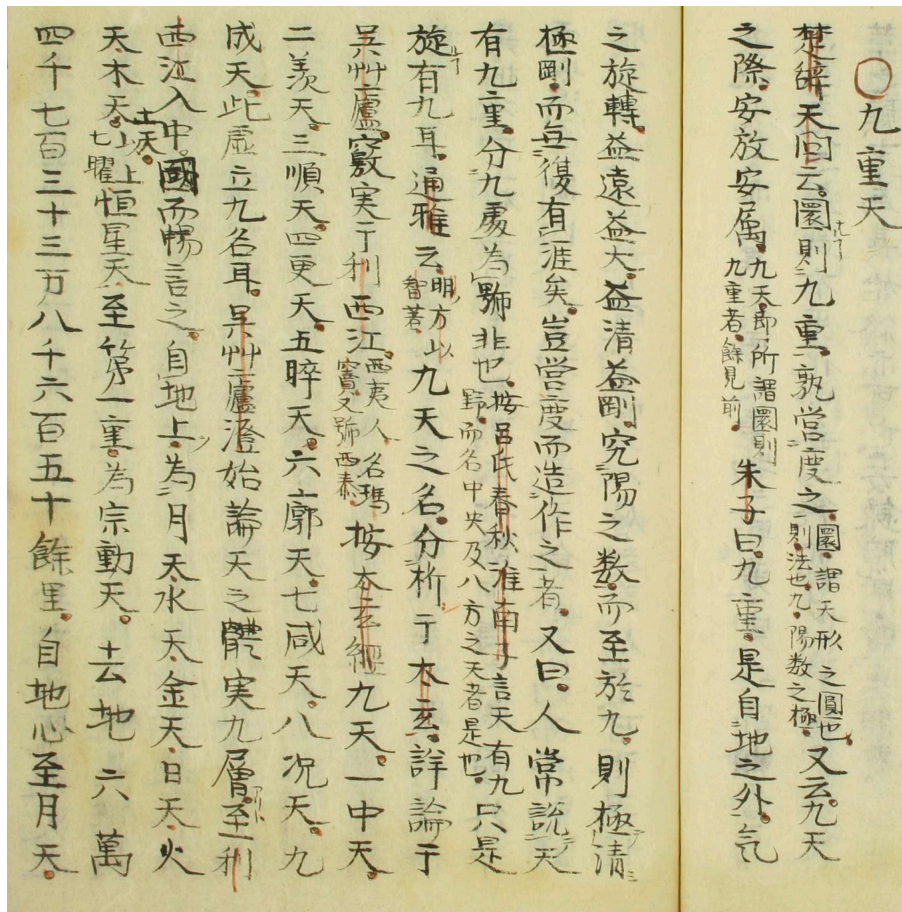 〇九重天
楚辞天問云圜則九重孰営度之圜謂天形之圓也則法也九陽数之極又云九天
之際安放安属九天即所謂圜則九重者餘見前朱子曰九重是自地之外気
之旋轉益遠益大益清益剛究陽之数而至於九則極清
極剛而無復有涯矣豈営度而造作之者又曰人常説天
有九重分九處為號非也按呂氏春秋淮南子言天有九野而名中央及八方之天者是也只是
旋有九耳通雅云明方以智著九天之名分析于太玄詳論于
呉艸廬竅実于利西江西夷人名瑪竇又號西泰按太玄經九天一中天
二羨天三順天四更天五睟天六廓天七咸天八况天九
成天此虚立九名耳呉艸廬澄始論天之體実九層至利
西江入中國而暢言之自地上為月天水天金天日天火
天木天土天以上七曜恒星天至第一重為宗動天去地六萬
四千七百三十三万八千六百五十餘里自地心至月天